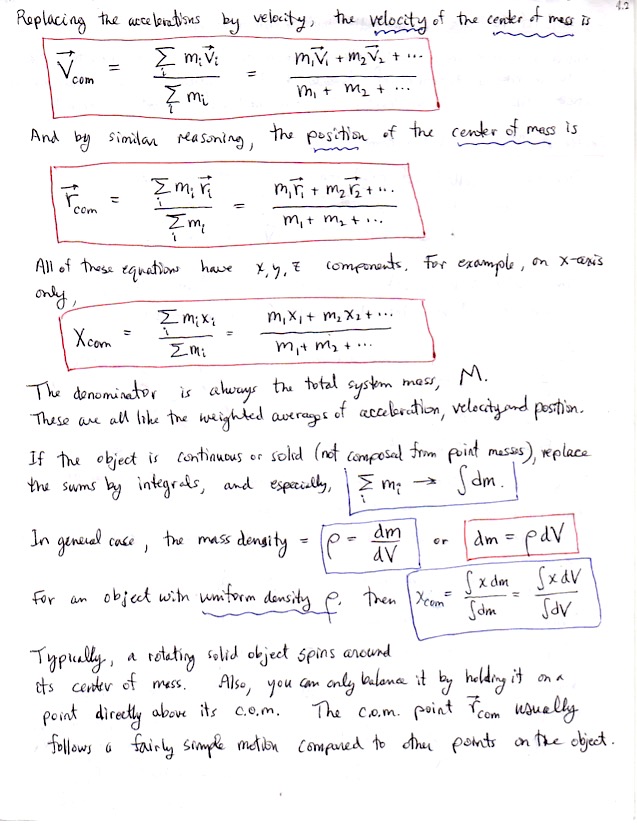 4.2
Replacing the accelerations by velocity, the velocity of the center of mass is
V⃗com = Σᵢ mᵢV⃗ᵢ / Σᵢ mᵢ = (m₁V⃗₁ + m₂V⃗₂ + ···) / (m₁ + m₂ + ···)
And by similar reasoning, the position of the center of mass is
r⃗com = Σᵢ mᵢ r⃗ᵢ / Σᵢ mᵢ = (m₁r⃗₁ + m₂r⃗₂ + ···) / (m₁ + m₂ + ···)
All of these equations have x, y, z components. For example, on x-axis
only,
Xcom = Σᵢ mᵢxᵢ / Σ mᵢ = (m₁x₁ + m₂x₂ + ···) / (m₁ + m₂ + ···)
The denominator is always the total system mass, M.
These are all like the weighted averages of acceleration, velocity and position.
If the object is continuous or solid (not composed from point masses), replace
the sums by integrals, and especially, Σᵢ mᵢ → ∫dm.
In general case, the mass density = ρ = dm/dV or dm = ρdV
For an object with uniform density ρ. then Xcom = ∫x dm / ∫dm = ∫x dV / ∫dV
Typically, a rotating solid object spins around
its center of mass. Also, you can only balance it by holding it on a
point directly above its c.o.m. The c.o.m. point r⃗com usually
follows a fairly simple motion compared to other points on the object.